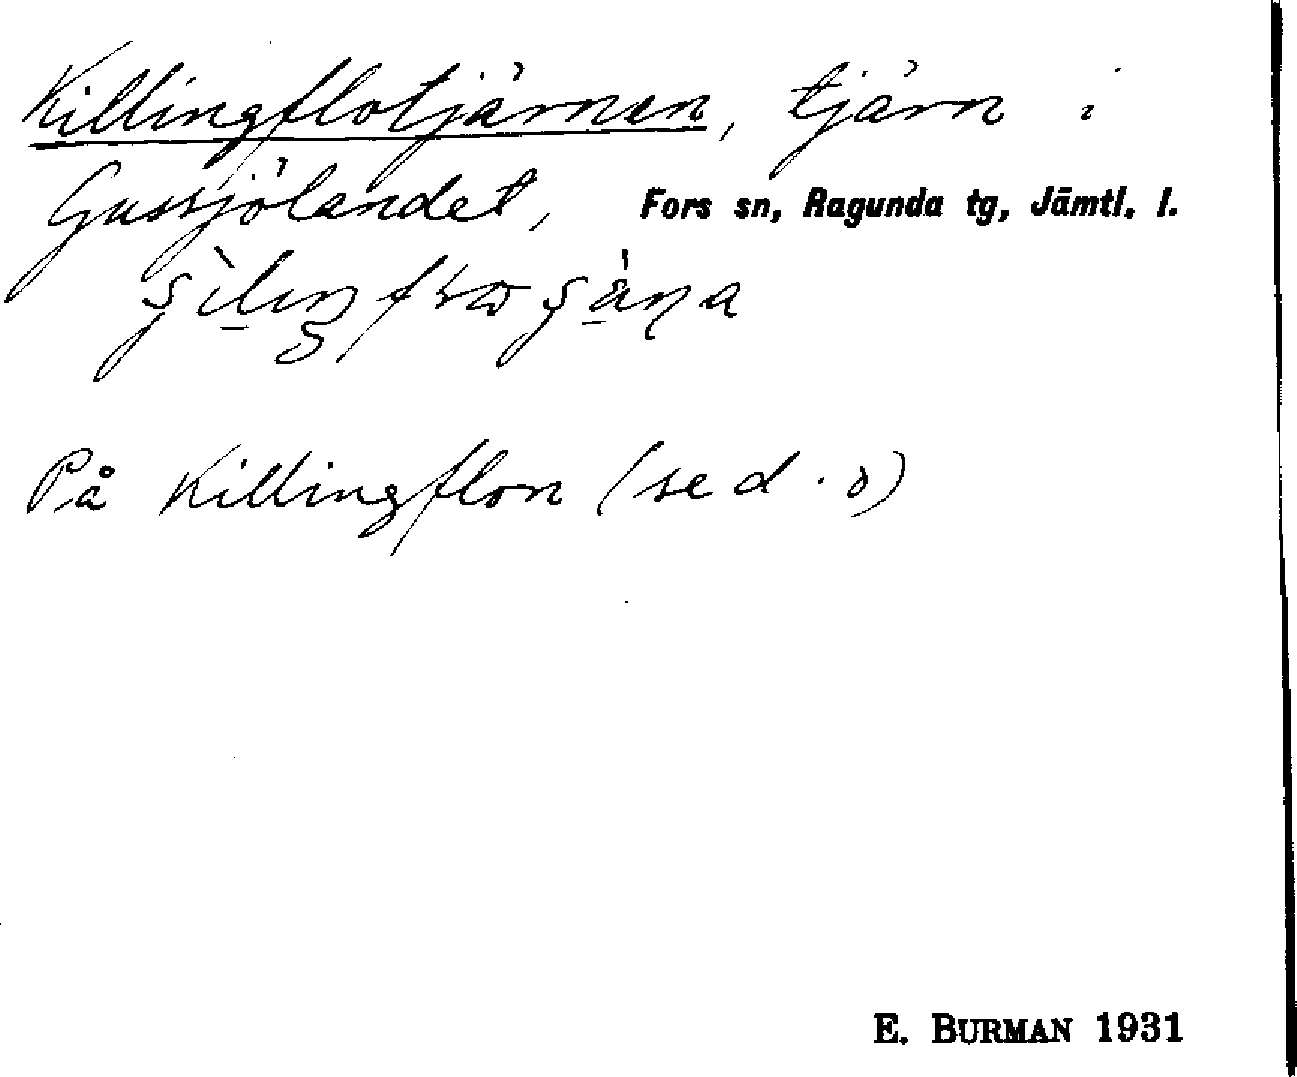 Killingflotjärnen, tjärn i
Gussjölandet, Fors sn, Ragunda tg, Jämtl. l.
På Killingflon (se d. o)
E. BURMAN 1931